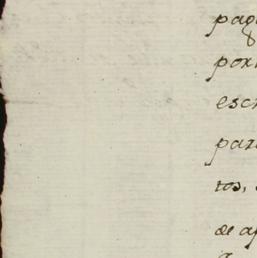 pag
por
escr
para
tos,
de ap